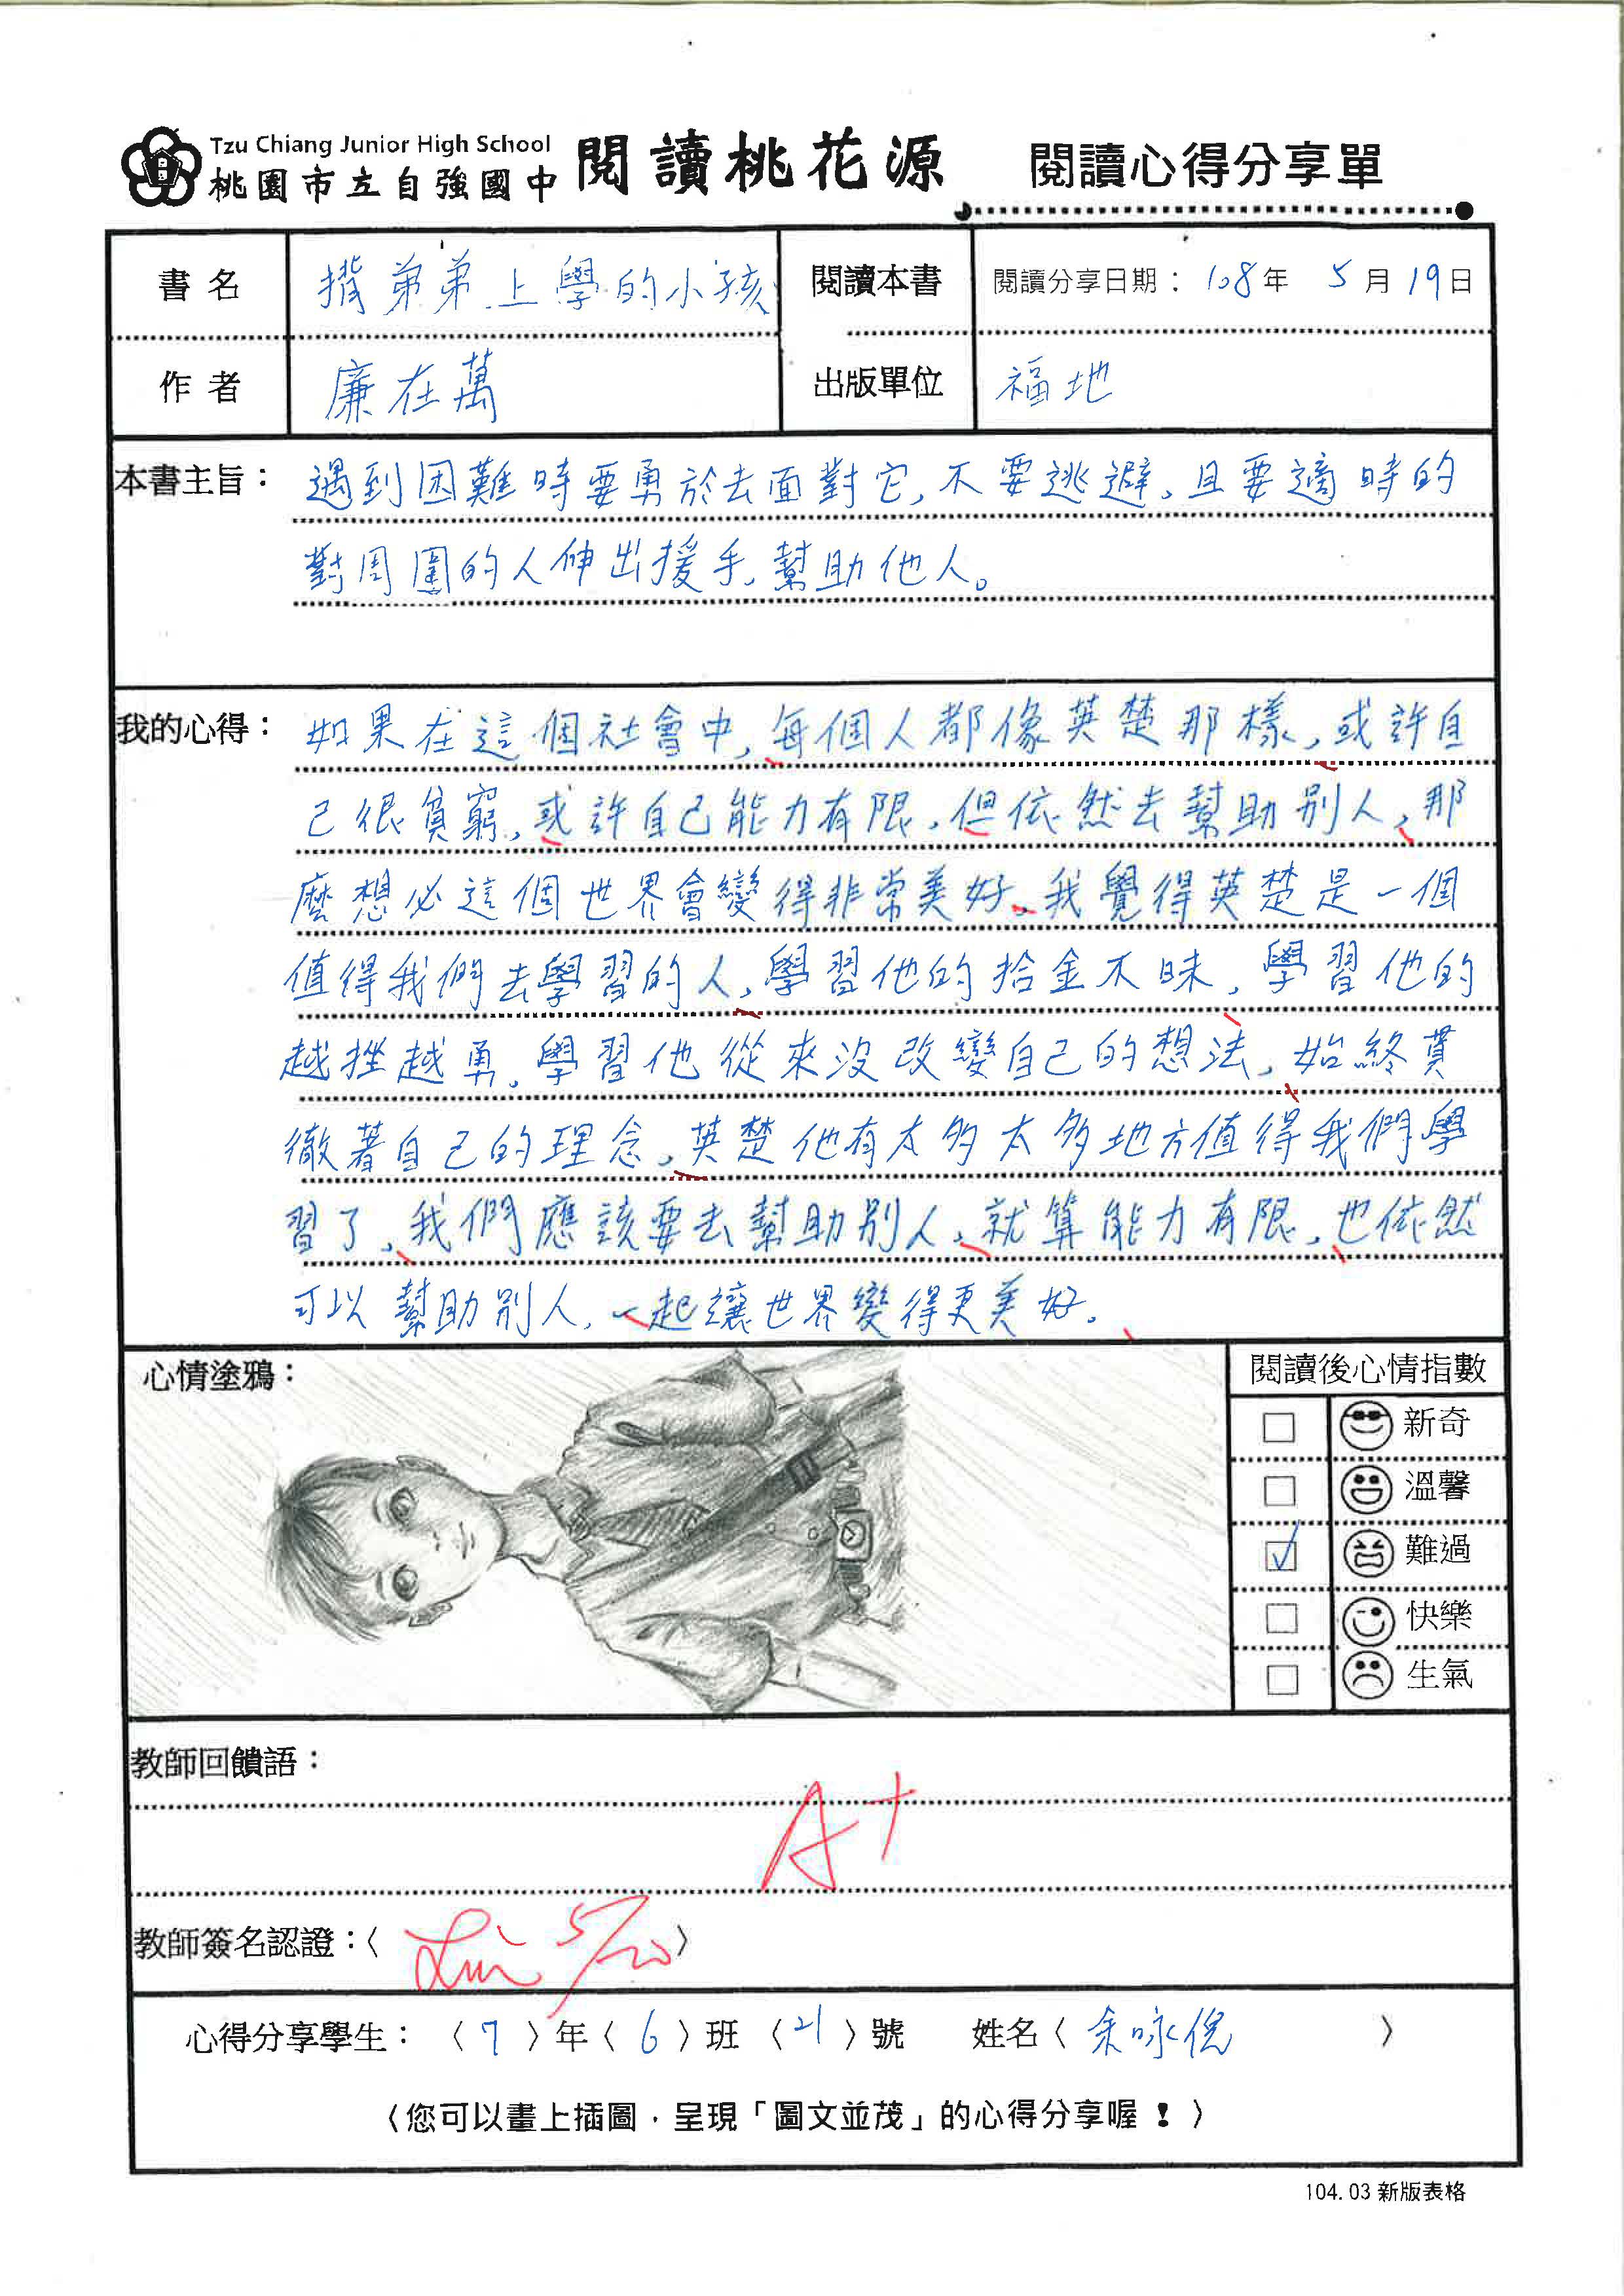 Tzu Chiang Junior High School
桃園市立自強國中 閱讀桃花源 閱讀心得分享單
書名 揹弟弟上學的小孩 閱讀本書 閱讀分享日期：108年 5月19日
作者 廉在萬 出版單位 福地
本書主旨：遇到困難時要勇於去面對它,不要逃避,且要適時的
對周圍的人伸出援手,幫助他人。
我的心得：如果在這個社會中,每個人都像英楚那樣,或許自
己很貧窮,或許自己能力有限,但依然去幫助別人,那
麼想必這個世界會變得非常美好,我覺得英楚是一個
值得我們去學習的人,學習他的拾金不昧,學習他的
越挫越勇,學習他從來沒改變自己的想法,始終貫
徹著自己的理念,英楚他有太多太多地方值得我們學
習了,我們應該要去幫助別人,就算能力有限,也依然
可以幫助別人,一起讓世界變得更美好。
心情塗鴉：
閱讀後心情指數
新奇
溫馨
✓ 難過
快樂
生氣
教師回饋語：
A+
教師簽名認證：〈 Lin 5/20 〉
心得分享學生：〈7〉年〈6〉班〈21〉號 姓名〈余咏倪〉
〈您可以畫上插圖，呈現「圖文並茂」的心得分享喔！〉
104.03 新版表格